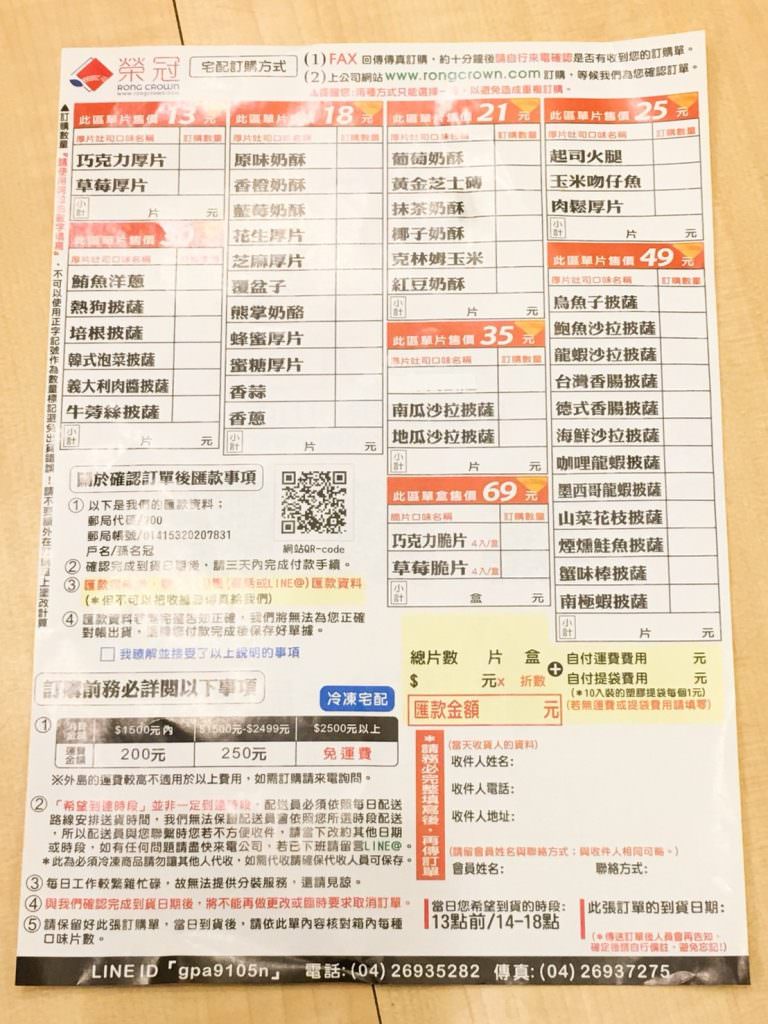 榮冠
RONG CROWN
宅配訂購方式
(1) FAX 回傳傳真訂購，約十分鐘後請自行來電確認是否有收到您的訂購單。
(2) 上公司網站 www.rongcrown.com 訂購，等候我們為您確認訂單。
兩種方式只能選擇一，以避免造成重複訂購。
▲訂購數量
不可以使用正字記號作為數量標記避免出貨錯誤！請不要額外在訂購單上塗改計算
此區單片售價 13 元
厚片吐司口味名稱 訂購數量
巧克力厚片
草莓厚片
小計 片 元
此區單片售價 30
厚片吐司口味名稱
鮪魚洋蔥
熱狗披薩
培根披薩
韓式泡菜披薩
義大利肉醬披薩
牛蒡絲披薩
小計 片 元
此區單片售價 18 元
厚片吐司口味名稱 訂購數量
原味奶酥
香橙奶酥
藍莓奶酥
花生厚片
芝麻厚片
覆盆子
熊掌奶酪
蜂蜜厚片
蜜糖厚片
香蒜
香蔥
小計 片 元
此區單片售價 21 元
厚片吐司口味名稱 訂購數量
葡萄奶酥
黃金芝士磚
抹茶奶酥
椰子奶酥
克林姆玉米
紅豆奶酥
小計 片 元
此區單片售價 35 元
厚片吐司口味名稱 訂購數量
南瓜沙拉披薩
地瓜沙拉披薩
小計 片 元
此區單盒售價 69 元
脆片口味名稱 訂購數量
巧克力脆片 4入/盒
草莓脆片 4入/盒
小計 盒 元
此區單片售價 25 元
厚片吐司口味名稱 訂購數量
起司火腿
玉米吻仔魚
肉鬆厚片
小計 片 元
此區單片售價 49 元
厚片吐司口味名稱 訂購數量
烏魚子披薩
鮑魚沙拉披薩
龍蝦沙拉披薩
台灣香腸披薩
德式香腸披薩
海鮮沙拉披薩
咖哩龍蝦披薩
墨西哥龍蝦披薩
山菜花枝披薩
煙燻鮭魚披薩
蟹味棒披薩
南極蝦披薩
小計 片 元
關於確認訂單後匯款事項
網站QR-code
① 以下是我們的匯款資料：
郵局代碼/700
郵局帳號/01415320207831
戶名/孫名冠
② 確認完成到貨日期後，請三天內完成付款手續。
③ 匯款完 LINE@)匯款資料
(*但不可以把收據 傳真給我們)
④ 匯款資料 正確，我們將無法為您正確
對帳出貨， 您付款完成後保存好單據。
□ 我瞭解並接受了以上說明的事項
總片數 片 盒 + 自付運費費用 元
$ 元x 折數 自付提袋費用 元
(*10入裝的塑膠提袋每個1元)
(若無運費或提袋費用請填零)
匯款金額 元
訂購前務必詳閱以下事項
冷凍宅配
① 金額 $1500元內 $1500元-$2499元 $2500元以上
運費金額 200元 250元 免運費
※外島的運費較高不適用於以上費用，如需訂購請來電詢問。
② 「希望到達時段」並非一定到達時段，配送員必須依照每日配送
路線安排送貨時間，我們無法保證配送員會依照您所選時段配送
，所以配送員與您聯繫時您若不方便收件，請當下改約其他日期
或時段，如有任何問題請盡快來電公司，若已下班請留言LINE@。
*此為必須冷凍商品請勿讓其他人代收，如需代收請確保代收人員可保存。
③ 每日工作較繁雜忙碌，故無法提供分裝服務，還請見諒。
④ 與我們確認完成到貨日期後，將不能再做更改或臨時要求取消訂單。
⑤ 請保留好此張訂購單，當日到貨後，請依此單內容核對箱內每種
口味片數。
*請務必完整填寫後，再傳訂單
(當天收貨人的資料)
收件人姓名:
收件人電話:
收件人地址:
(請留會員姓名與聯絡方式；與收件人相同可略。)
會員姓名: 聯絡方式:
當日您希望到貨的時段:
13點前/14-18點
此張訂單的到貨日期:
(*傳送訂單後人員會再告知，
確定後請自行備註，避免忘記!)
LINE ID「gpa9105n」 電話: (04) 26935282 傳真: (04) 26937275